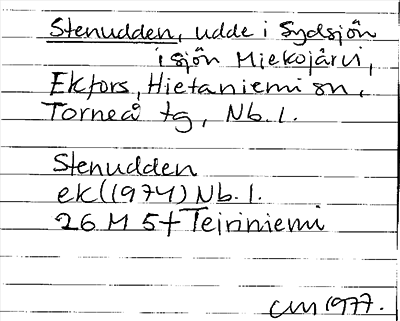 Stenudden, udde i Sydsjön
i sjön Miekojärvi,
Ekfors, Hietaniemi sn,
Torneå tg, Nb. l.
Stenudden
ek (1974) Nb. l.
26 M 5f Teiriniemi
CM 1977.